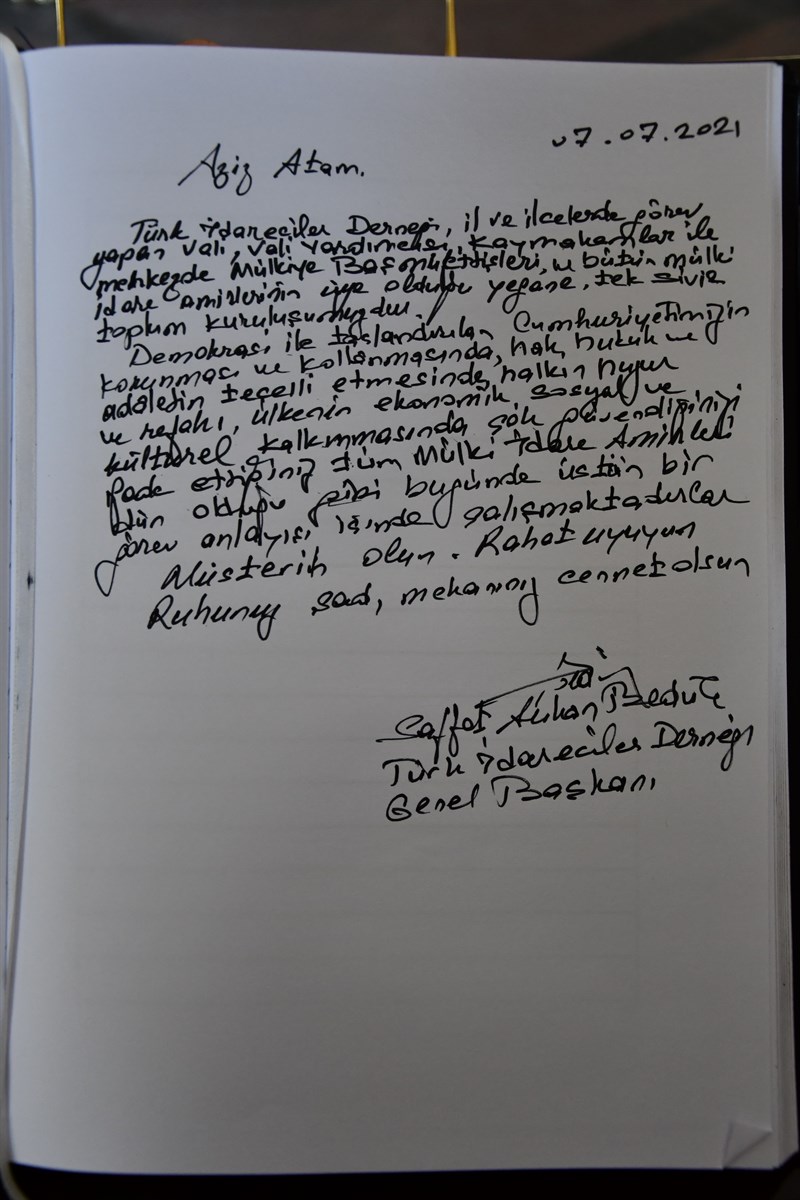 07.07.2021
Aziz Atam.
Türk İdareciler Derneği, il ve ilçelerde görev
yapan vali, vali yardımcısı, kaymakamlar ile
merkezde Mülkiye Başmüfettişleri, ve bütün mülki
idare amirlerinin üye olduğu yegane, tek sivil
toplum kuruluşumuzdur.
Demokrasi ile taçlandırılan Cumhuriyetimizin
korunması ve kollanmasında, hak, hukuk ve
adaletin tecelli etmesinde, halkın huzur
ve refahı, ülkenin ekonomik, sosyal ve
kültürel kalkınmasında çok güvendiğinizi
ifade ettiğiniz tüm Mülki İdare Amirleri
dün olduğu gibi bugünde üstün bir
görev anlayışı içinde çalışmaktadırlar
Müsterih olun. Rahat uyuyun
Ruhunuz şad, mekanınız cennet olsun
Saffet Arıkan Bedük
Türk İdareciler Derneği
Genel Başkanı